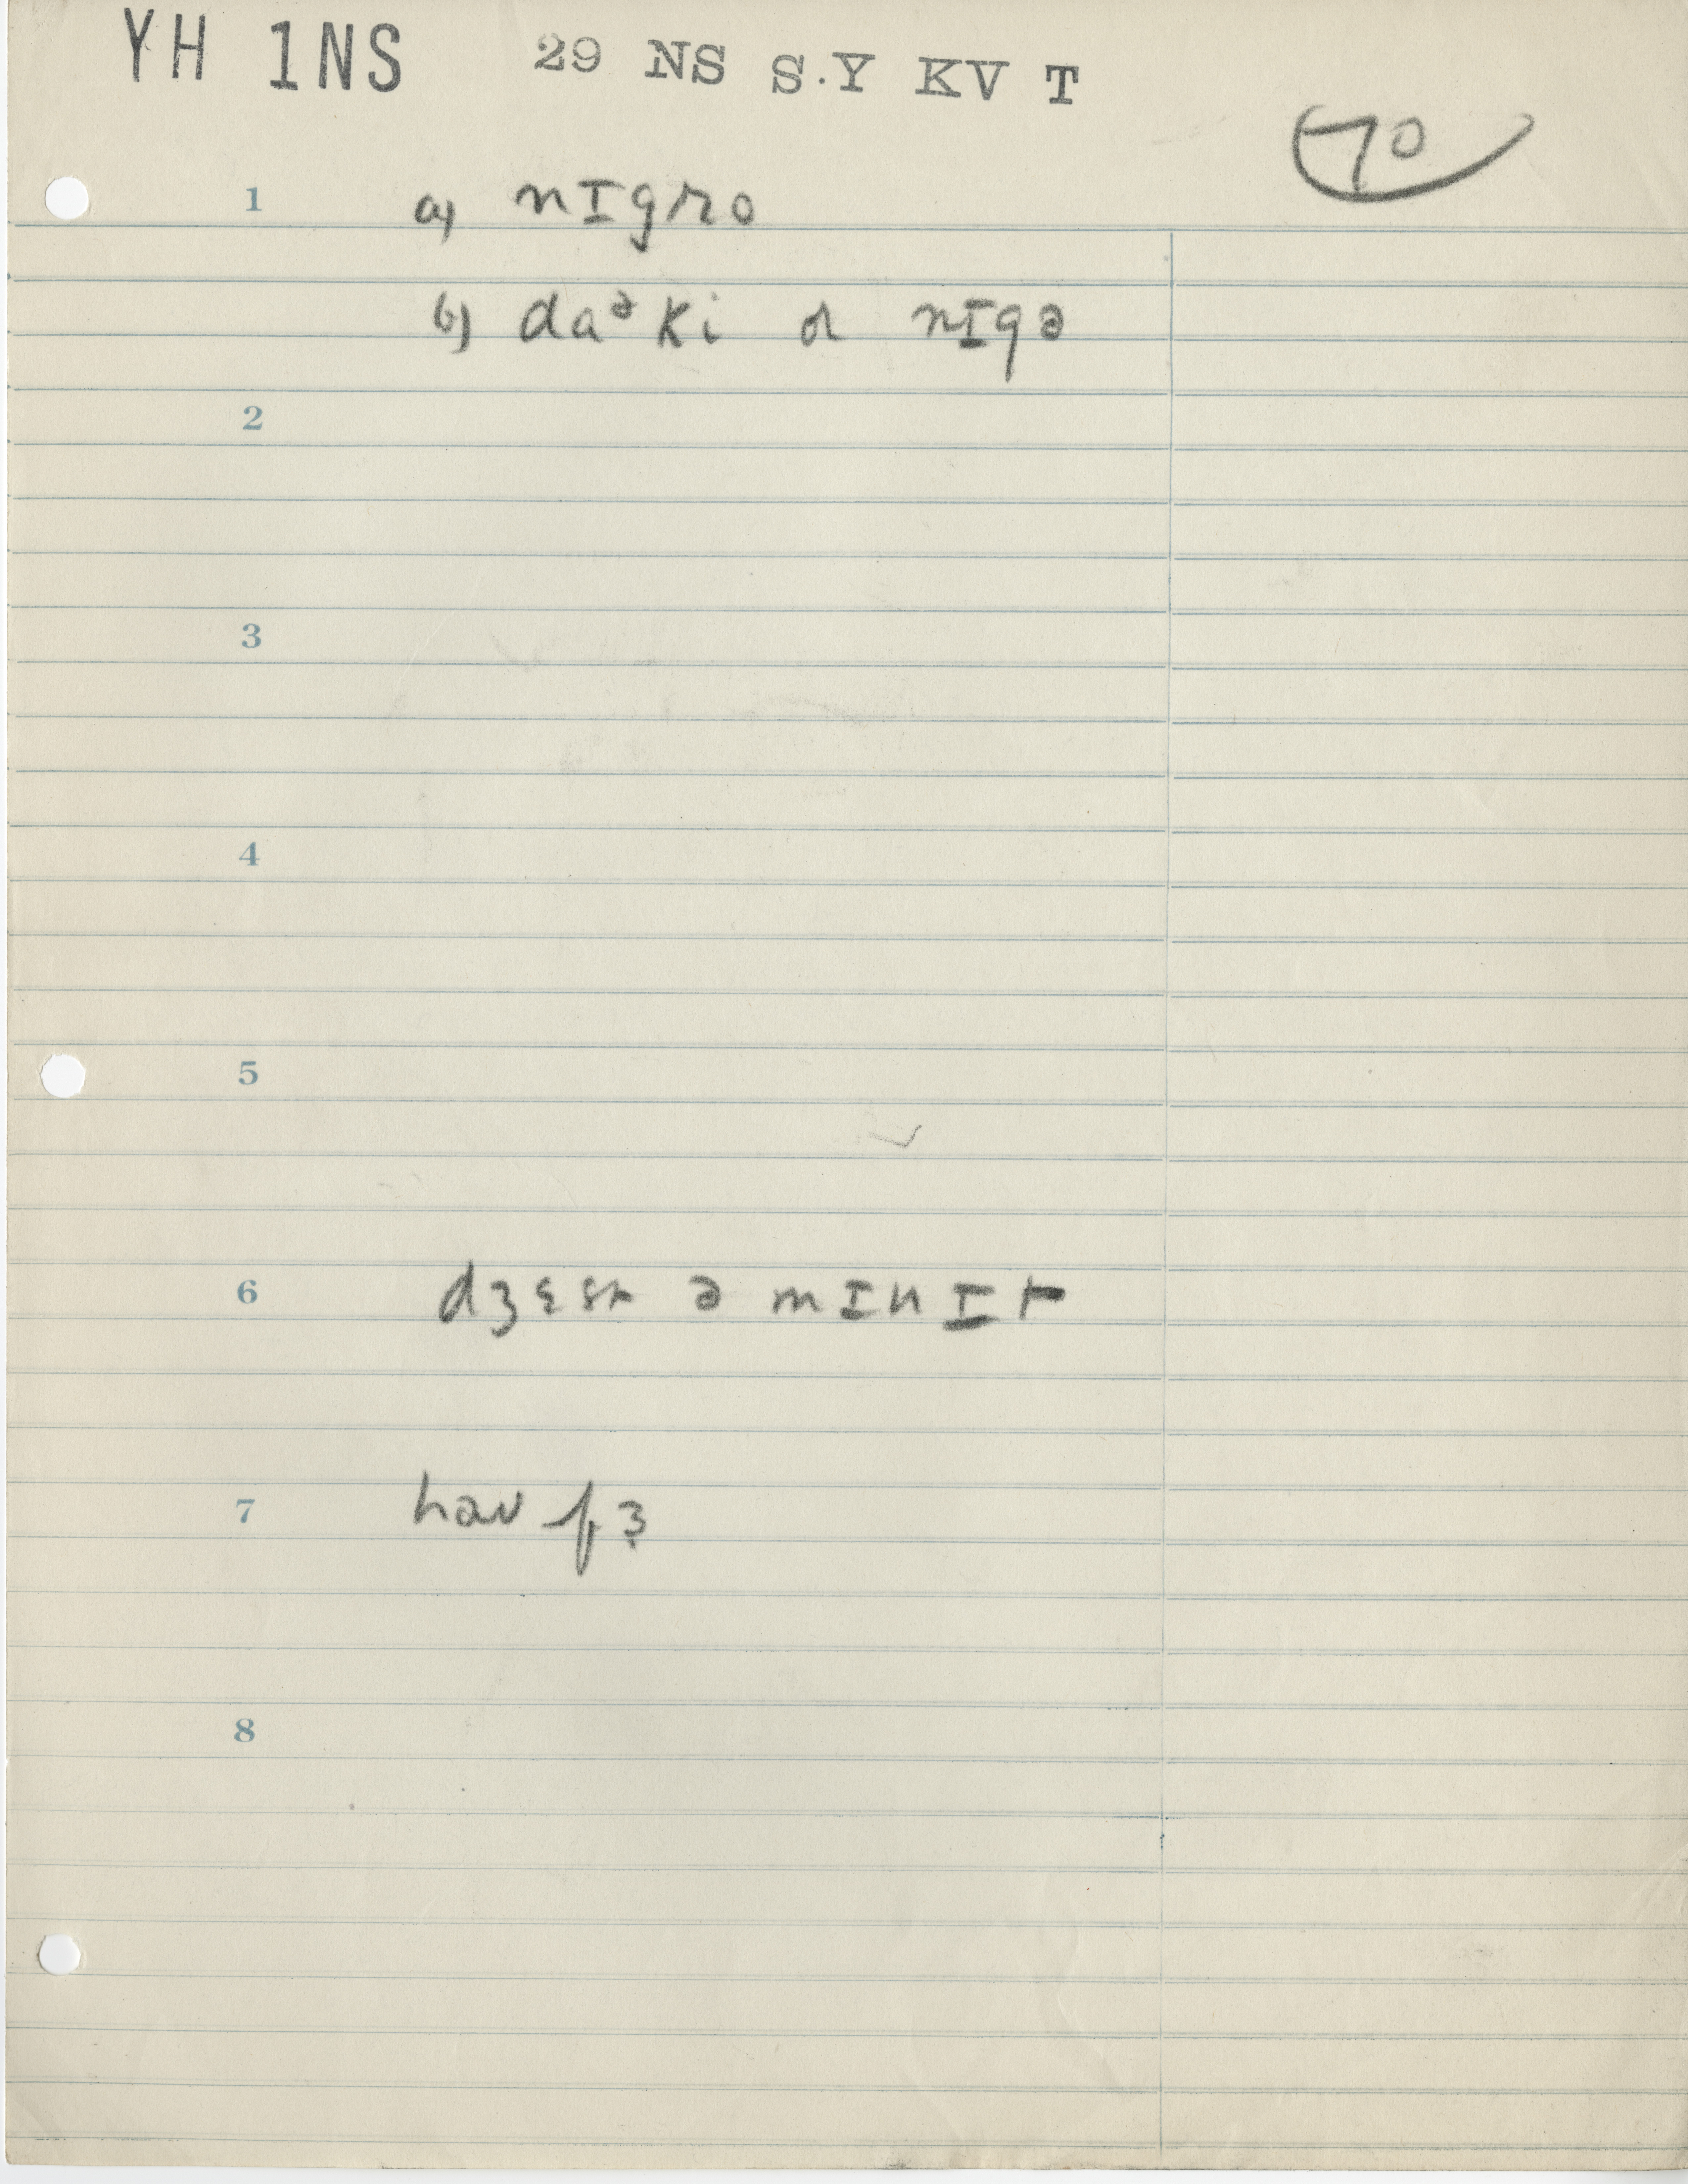 YH 1NS 29 NS S.Y KV T
70
1 a) nɪgro
b) daᵊki or nɪgə
2
3
4
5
6 dʒɛst ə mɪnɪt
7
8